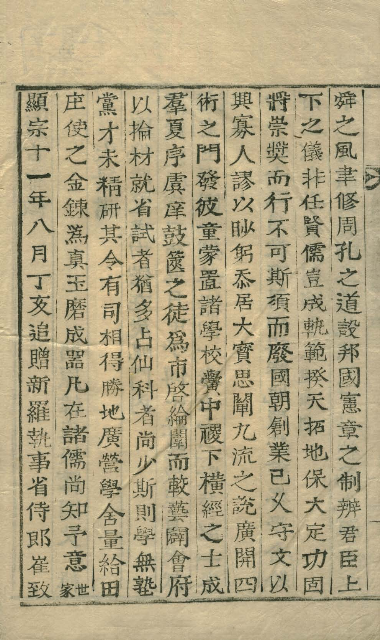 舜之風聿修周孔之道設邦國憲章之制辨君臣上
下之儀非任賢儒豈成軌範揆天拓地保大定功固
將崇奬而行不可斯須而廢國朝剏業已久守文以
興寡人謬以眇躬忝居大寶思闡九流之說廣開四
術之門發彼童蒙置諸學校黌中稷下橫經之士成
羣夏序虞庠鼓篋之徒爲市啓綸闈而較藝闢會府
以掄材就省試者猶多占仙科者尚少斯則學無塾
黨才未精硏其令有司相得勝地廣營學舍量給田
庄使之金鍊爲真玉磨成器凡在諸儒尚知予意世家
顯宗十一年八月丁亥追贈新羅執事省侍郎崔致